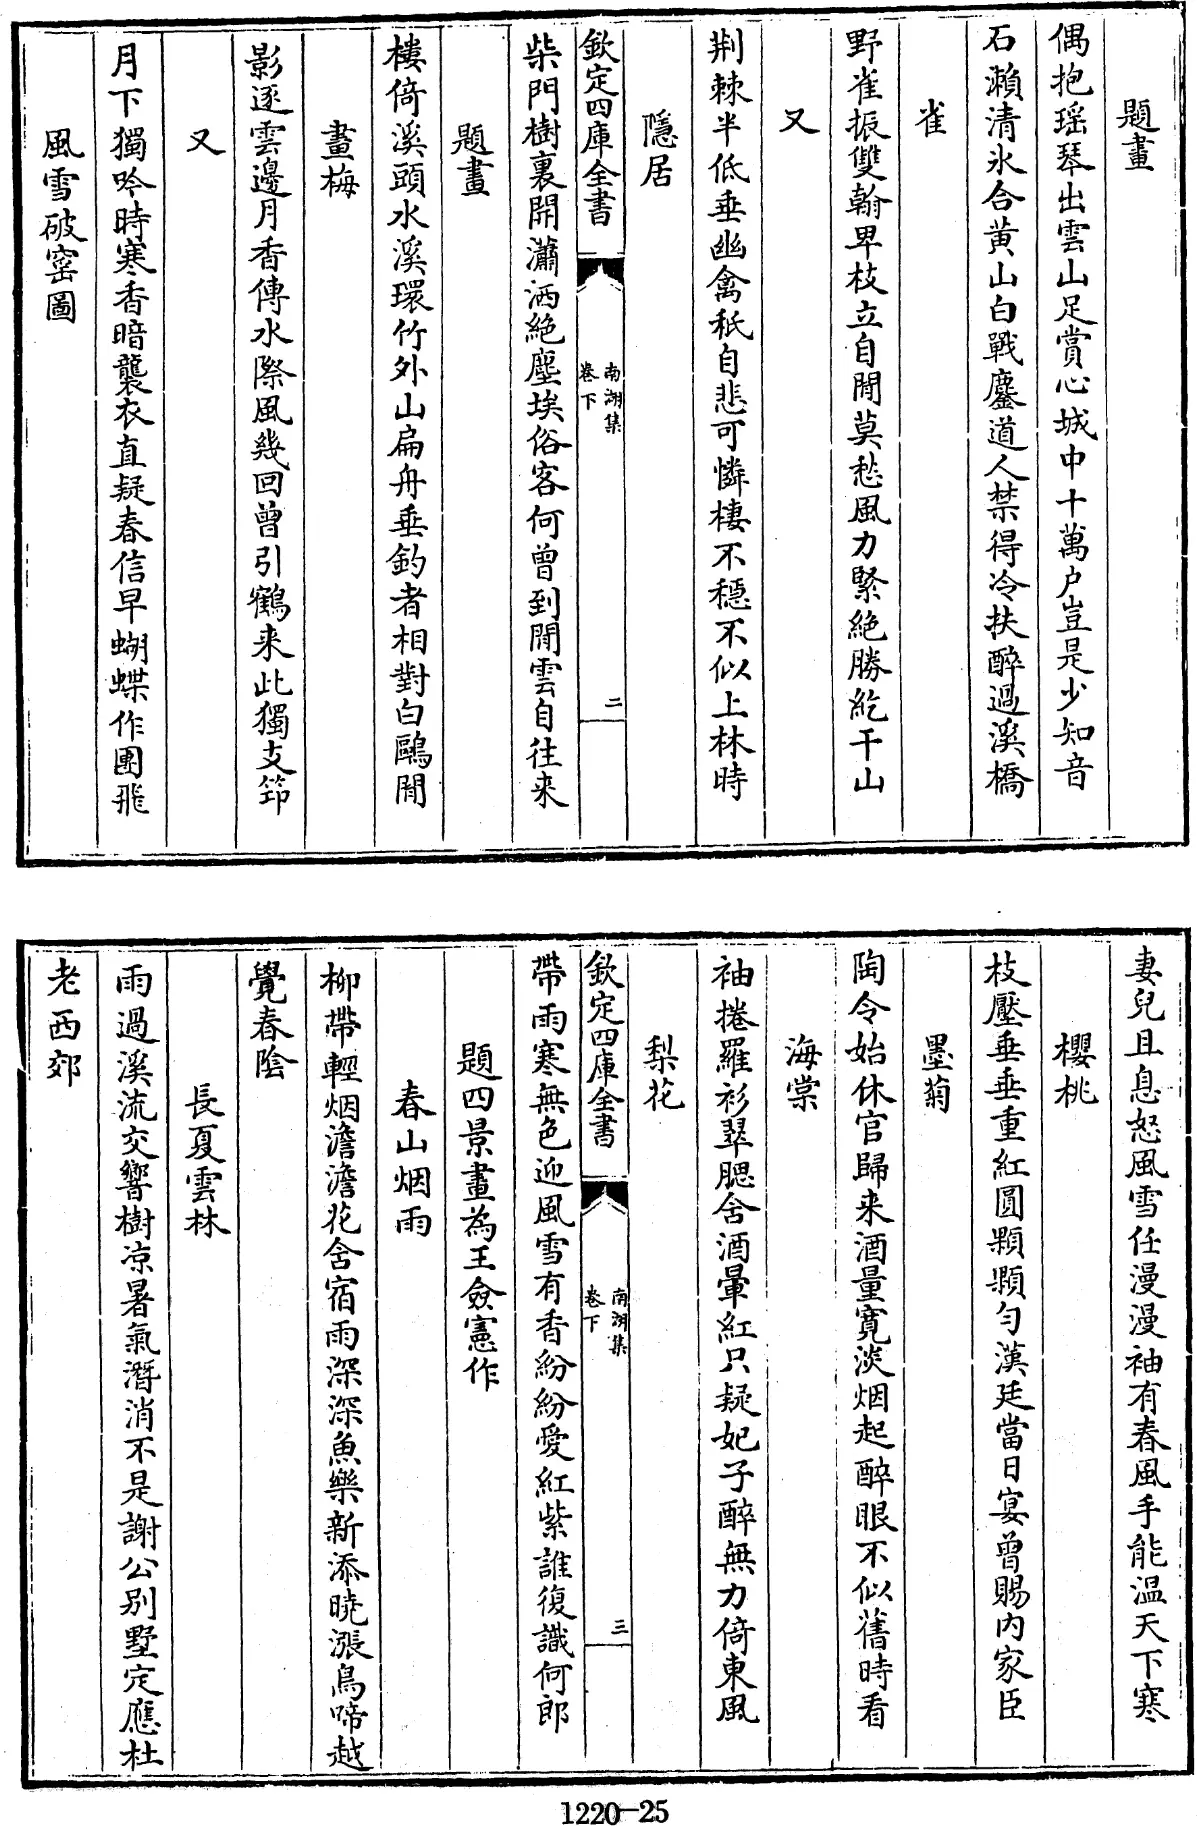 題畫
偶抱瑶琴出雲山足賞心城中十萬户豈是少知音
石瀨清氷合黄山白戰鏖道人禁得冷扶醉過溪橋
雀
野雀振雙翰卑枝立自閒莫愁風力緊絶勝紇干山
又
荆棘半低垂幽禽秪自悲可憐棲不穩不似上林時
隱居
欽定四庫全書
南湖集
卷下
二
柴門樹裏開瀟洒絶塵埃俗客何曾到閒雲自往来
題畫
樓倚溪頭水溪環竹外山扁舟垂釣者相對白鷗閒
畫梅
影逐雲邊月香傳水際風幾回曾引鶴来此獨支筇
又
月下獨吟時寒香暗襲衣直疑春信早蝴蝶作團飛
風雪破窑圖
妻兒且息怒風雪任漫漫袖有春風手能温天下寒
櫻桃
枝壓垂垂重紅圓顆顆勻漢廷當日宴曾賜内家臣
墨菊
陶令始休官歸来酒量寛淡烟起醉眼不似舊時看
海棠
袖捲羅衫翠腮含酒暈紅只疑妃子醉無力倚東風
梨花
欽定四庫全書
南湖集
卷下
三
帶雨寒無色迎風雪有香紛紛愛紅紫誰復識何郎
題四景畫為王僉憲作
春山烟雨
柳帶輕烟澹澹花含宿雨深深魚樂新添曉漲鳥啼越
覺春陰
長夏雲林
雨過溪流交響樹凉暑氣潛消不是謝公别墅定應杜
老西郊
1220-25